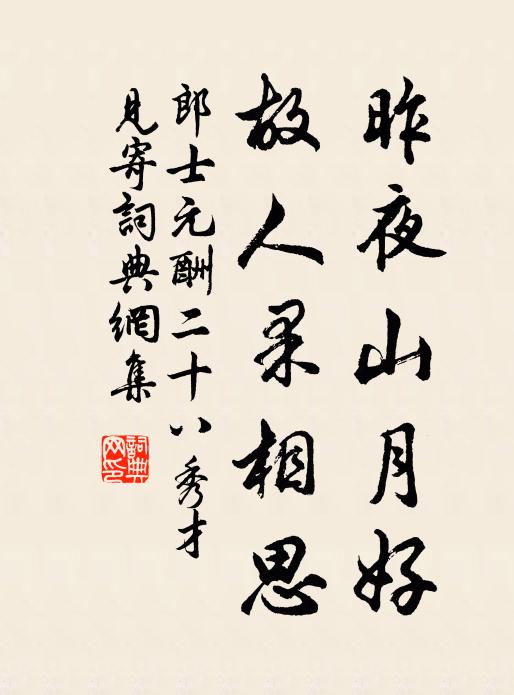 昨夜山月好
故人果相思
郎士元酬二十八秀才
見寄詞典網集
詞典
网印